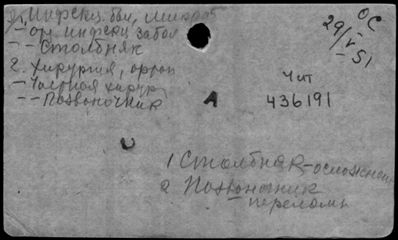 1. Инфекц. бол, микроб
- отд. инфекц забол
-- Столбняк
2. Хирургия, ортоп
- Частная хирур
-- Позвоночник
ОС
29/V-51
Чит
А
436191
1 Столбняк-осложнения
2 Позвоночник
переломы